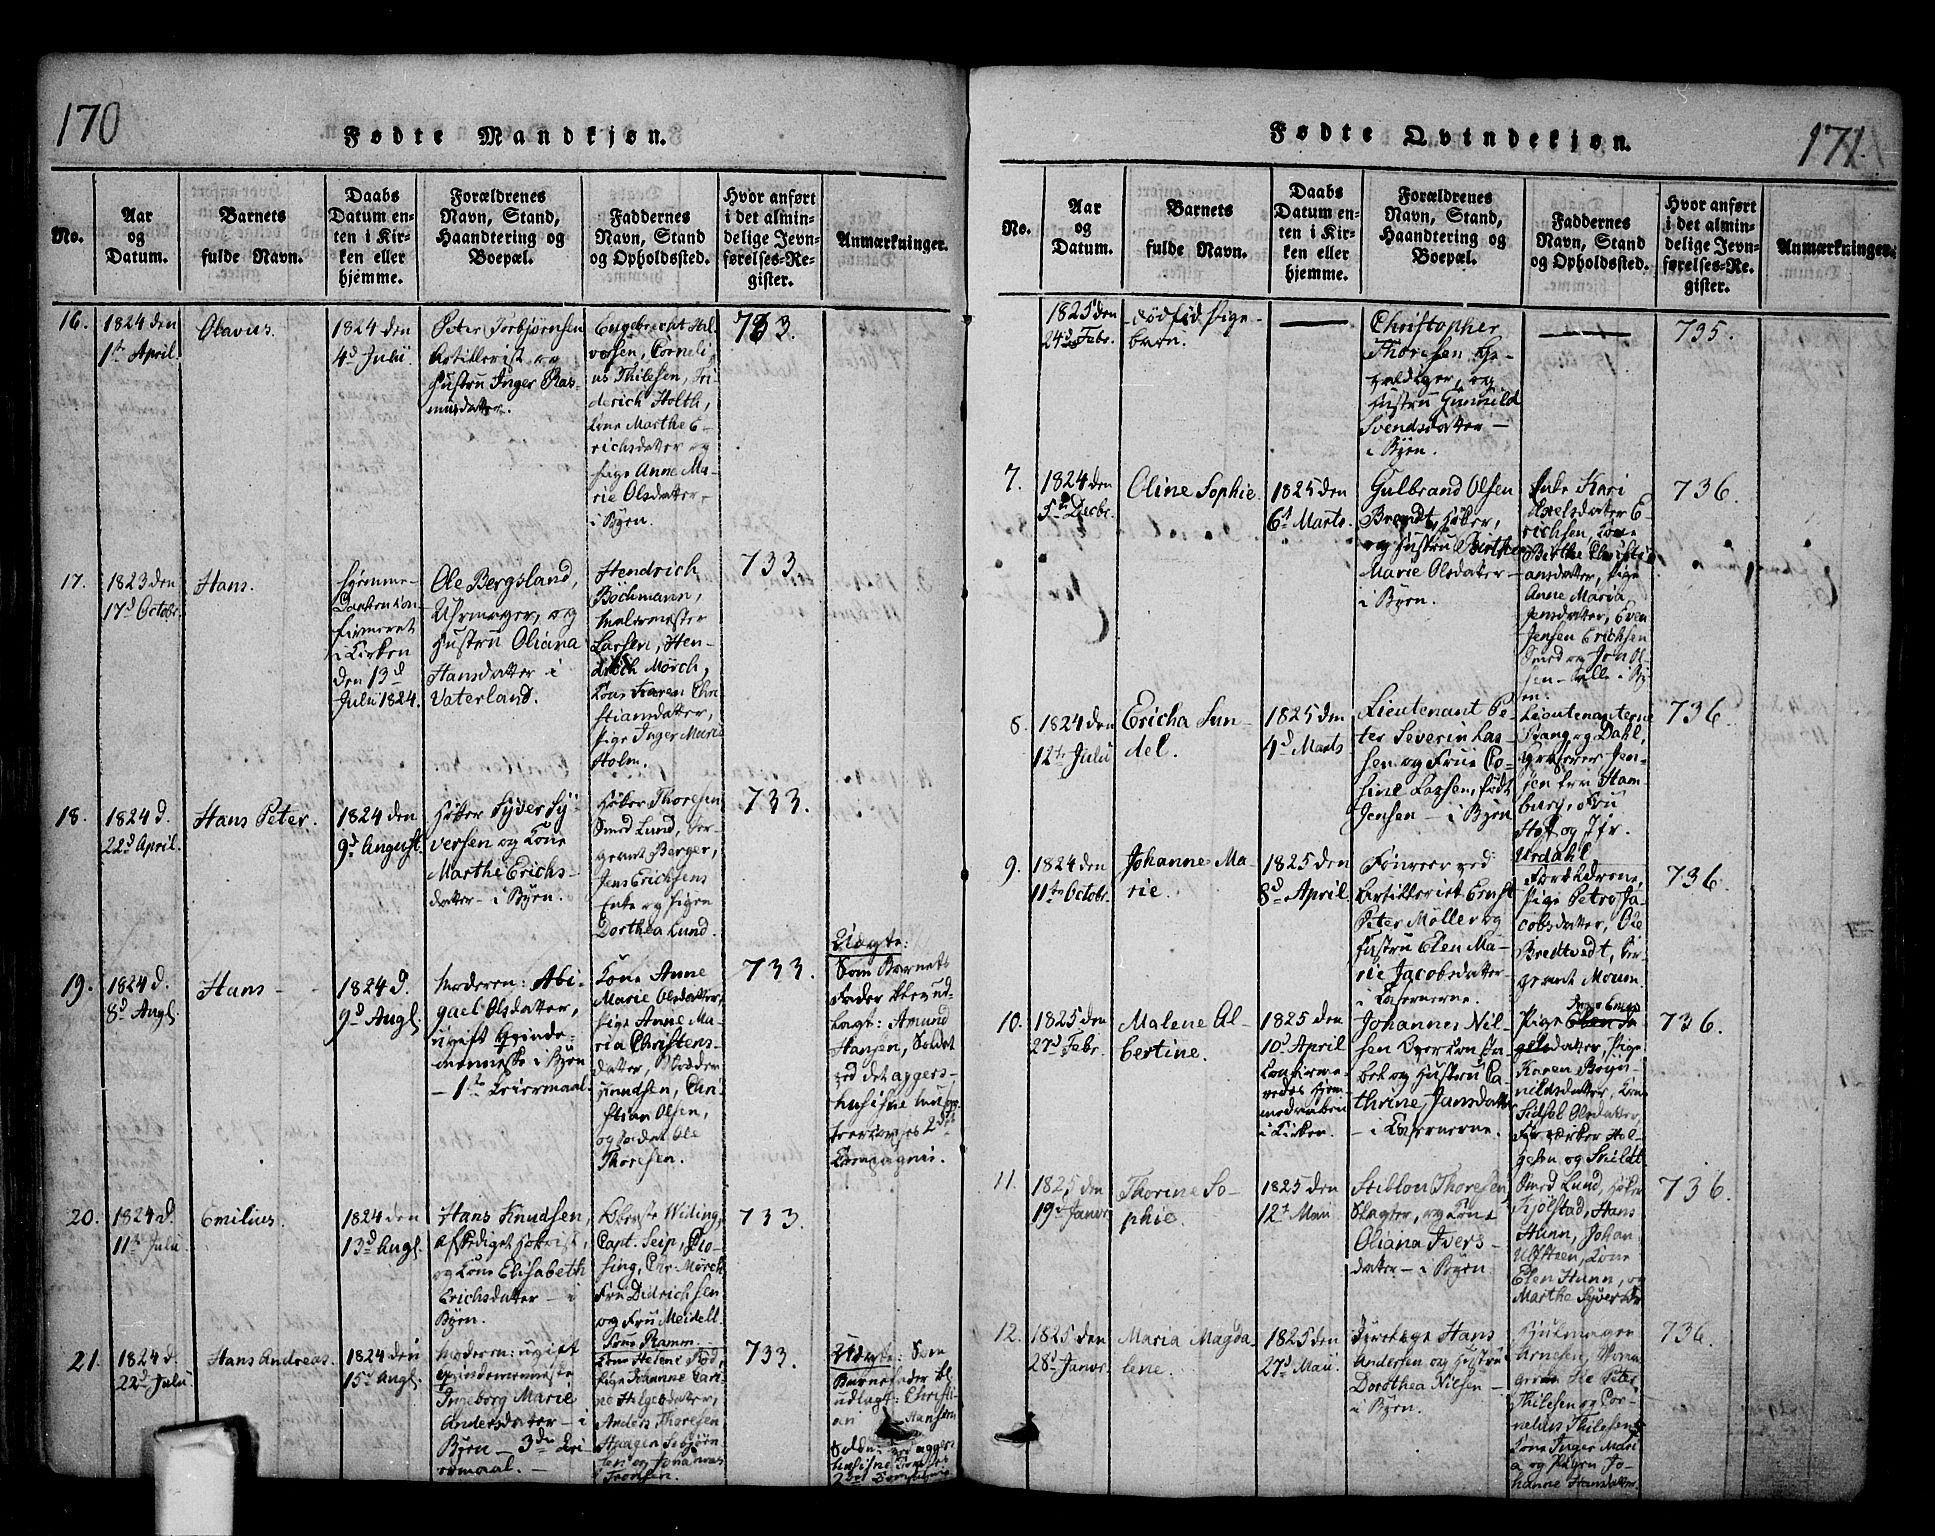 170
Fødte Mandkjøn.
No.
Aar
og
Datum.
Barnets
fulde Navn.
Daabs
Datum en-
ten i Kir-
ken eller
hjemme.
Forældrenes
Navn, Stand,
Haandtering og
Boepæl.
Faddernes
Navn, Stand
og Opholdssted.
Hvor anført
i det almin-
delige Jevn-
førelses-Re-
gister.
Anmærkninger.
16.
1824 den
1ste April.
Olavus.
1824 den
4d Julii
Peter Torbjørnsen
Artillerist og
Hustru Inger Ras-
musdatter.
Engebrecht Hal-
vorsen, Corneli-
us Thilesen, Fri-
derich Holth,
Kone Marthe E-
richsdatter og
Pige Anne Ma-
rie Olsdatter -
i Byen.
733.
17.
1823 den
17d Octobr.
Hans.
hjemme-
Daaben con-
firmeret
i Kirken
den 13d
Julii 1824.
Ole Bergsland,
Uhrmager, og
Hustru Oliana
Hansdatter i
Vaterland.
Hendrich
Bochmann,
Malermester
Larsen, Hen-
drich Mörch,
Kone Karen Chri-
stiansdatter,
Pige Inger Marie
Holm.
733
18.
1824 d.
22d April.
Hans Peter.
1824 den
9d August.
Høker Syver Sy-
versen og Kone
Marthe Erichs-
datter - i Byen.
Høker Thoresen
Smed Lund, Ser-
geant Berger,
Jens Erichsens
Enke og Pigen
Dorthea Lund.
733.
19.
1824 d.
8d Augl.
Hans
1824 d.
9d Augl.
Moderen: Abi-
gael Olsdatter,
ugift Qvinde-
menneske i Byen
- 1ste Leiermaal.
Kone Anne
Marie Olsdatter,
Pige Anne Ma-
ria Christens-
datter,
Knudsen, Chri-
stian Olsen,
og Ole
Thoresen.
733.
Uægte:
Som Barnets
Fader blev ud-
lagt: Amund
Hansen, Soldat
ved det aggers-
husiske
2det
Compagnie.
20.
1824 d.
11te Julii
Emilius.
1824 den
13d Augl.
Hans Knudsen,
afskediget
og Kone Elisabeth
Erichsdatter - i
Byen.
Oberste Widing,
Capt. Seip,
Chr Mörch
Fru Didrichsen
og Fru Meidell
Fru Ramm.
733.
21.
1824 d.
22d Julii
Hans Andreas.
1824 den
15d Augl.
Moderen: ugift
Qvindemenneske
Ingeborg Marie
Andersdatter - i
Byen - 3die Lei-
ermaal. -
Kone Helene
Pige Johanne Cari-
ne Helgesdatter,
Anders Thoresen
Haagen Torbjørn-
sen og Johannes
Tronsen.
733.
Uægte: Som
Barnefader bl.
udlagt: Christi-
an Hansen
Soldat ved agger-
husiske
2det Compagnie
171.
Fødte Qvindekjøn.
No.
Aar
og
Datum.
Barnets
fulde Navn.
Daabs
Datum en-
ten i Kir-
ken eller
hjemme.
Forældrenes
Navn, Stand,
Haandtering og
Boepæl.
Faddernes
Navn, Stand
og Opholdssted.
Hvor anført
i det almin-
delige Jevn-
førelses-Re-
gister.
Anmærkninger.
1825 den
24d Febr.
Dødfødt Pige-
barn.
Christopher
Thoresen Ge-
valdiger, og
Hustru Gunnild
Svendsdatter -
i Byen.
735.
7.
1824 den
5te Decbr.
Oline Sophie.
1825 den
6te Marts.
Gulbrand Olsen
Brandt, Høker,
og Hustru Birthe
Marie Olsdatter -
i Byen.
Enke Kari
Axelsdatter E-
richsen, Kone
Birthe Christi-
ansdatter, Pige
Anne Maria
Jensdatter, Even
Jensen Erichsen
Smed og Jon Ol-
sen - alle i By-
en.
736.
8.
1824 den
12te Julii
Ericha Sun-
del.
1825 den
4d Marts
Lieutenant Pe-
ter Severin Las-
sen og Frue Co-
sine Lassen, født
Jensen - i Byen
Lieutenanterne
Stang og Dahl,
Grosserer Jen-
sen fra Ham-
burg, Fru
Hoff og Jfr.
Urdahl
736.
9.
1824 den
11te Octobr.
Johanne Ma-
rie.
1825 den
8d April.
Tønveer ved
Artilleriet Ernst
Peter Möller og
Hustru Elen Ma-
rie Jacobsdatter
i Casernerne.
Forældrene,
Pige Petro Ja-
cobsdatter, Ole
Bredtvedt, Ser-
geant Mouen
736.
10.
1825 den
27d Febr.
Malene Al-
bertine.
1825 den
10d April
Confirme-
redes Hjem-
medaaben
i Kirken.
Johannes Nil-
sen Over Con-
stabel og Hustru Ca-
thrine Jansdatter
- i Casernerne.
Pige
datter, Pige
Karen Bryn-
nildsdatter, Kone
Sidsel Olsdatter
Fyrværker Hol-
gesen og Svildt
736.
11.
1825 den
19d Janvr
Thorine So-
phie.
1825 den
12te Maii
Stiblon Thoresen,
Slagter, og Kone
Oliana Ivers-
datter - i Byen
Smed Lund, Høker
Kjølstad, Hans
Hunn, Johan
Ulfsteen, Kone
Elen Hunn, og
Marthe Syversdr
736.
12.
1825 den
28d Janvr.
Maria Magda-
lene.
1825 den
27d Maii
Hans
Andersen og Hustru
Dorothea Nilsen -
i Byen.
Hjulmager
Arnesen,
Peter
Thilesen og Cor-
nelius Thilesen
Kone Inger Mari-
a og Pigen Jo-
hanne Hansdatter.
736.